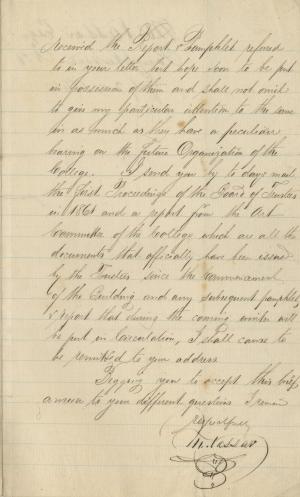 received the Report & Pamphlet refered
to in your letter but hope soon to be put
in possession of them and shall not omit
to give my particular attention to the same
in as much as they have a peculiar
bearing on the future Organization of the
College. I send you by to days mail
the first Proceedings of the Board of Trustees
in 1861 and a report from the Art
Committee of the College which are all the
documents that officially have been issued
by the Trustees since the commencement
of the Building and any subsequent pamphlet
& report that during the coming winter will
be put in Circulation, I shall cause to
be remitted to your address
Begging you to accept this brief
answer to your different questions I remain
respectfully
M. Vassar